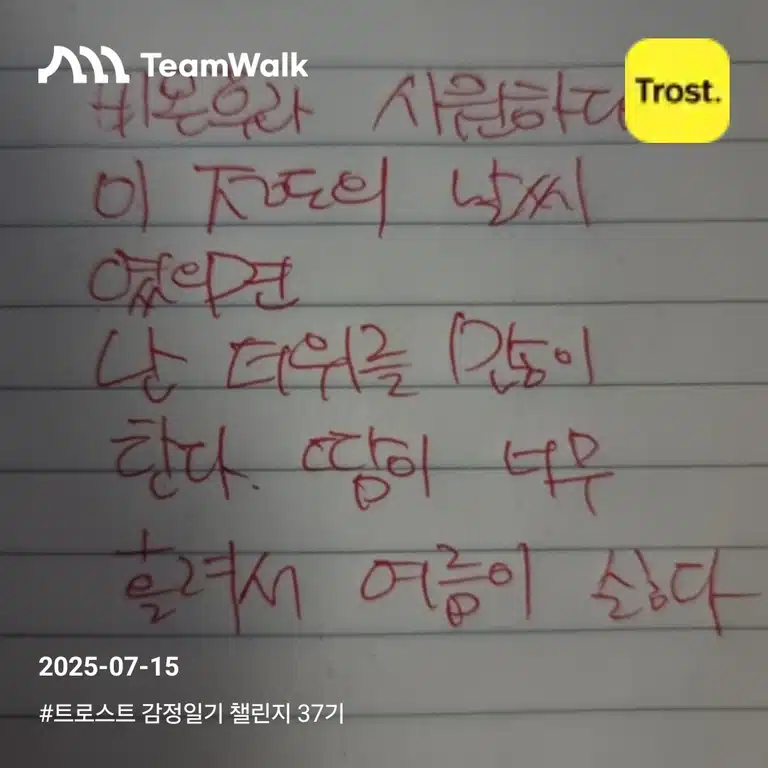 TeamWalk
Trost.
비온후라 시원하다
이 정도의 날씨
였으면
난 더위를 많이
탄다. 땀이 너무
흘려서 여름이 싫다
2025-07-15
#트로스트 감정일기 챌린지 37기